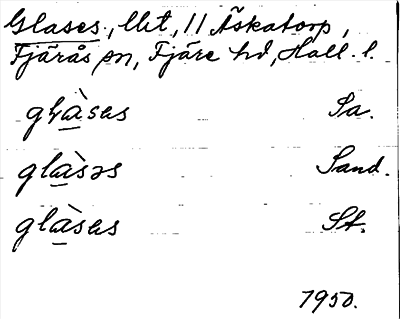 Glases, lht, 11 Åskatorp,
Fjärås sn, Fjäre hd, Hall. l.
glàsɐs Sa.
glàsəs Sand.
glàsɐs St.
1950.